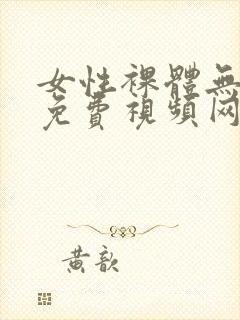 女性裸體無
免費視頻网
黄歆